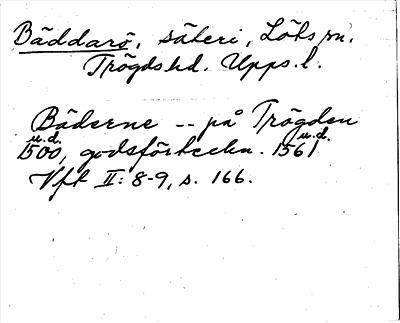 Bäddarö, säteri, Löts sn.
Trögds hd. Upps. l.
Bäderne -- på Trögden
u.d. u.d.
1500, godsförteckn. 1561
Vft II: 8-9, s. 166.